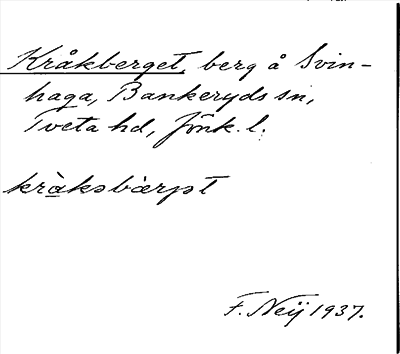 Kråkberget, berg å Svin-
haga, Bankeryds sn,
Tveta hd, Jönk. l.
F. Neij 1937.